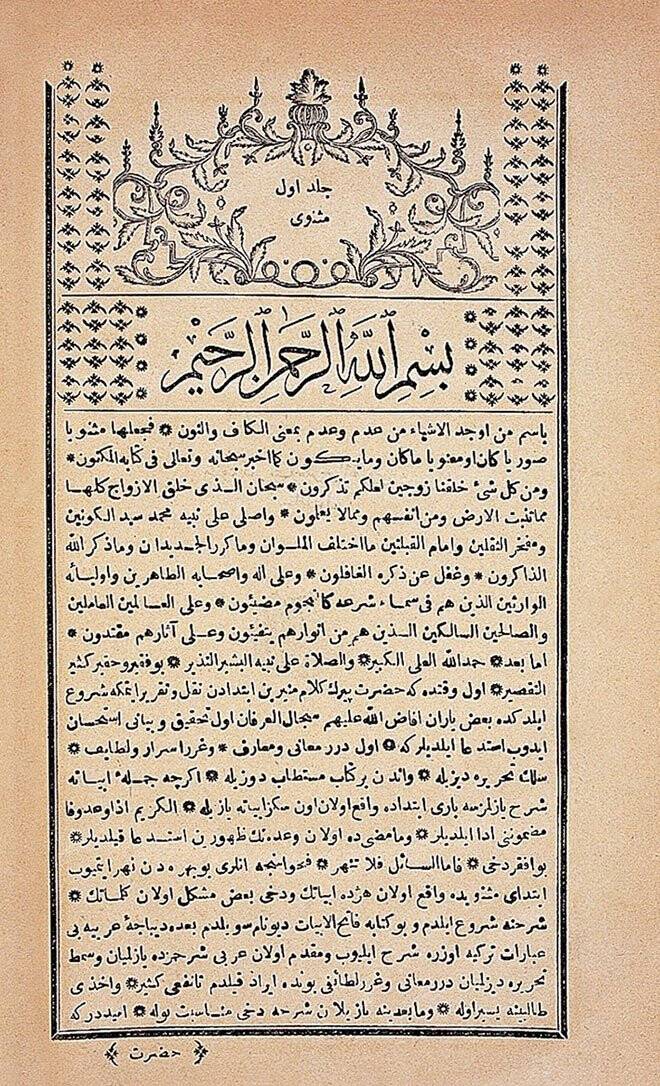 جلد اول
مثنوی
بسم الله الرحمن الرحيم
باسم من اوجد الاشياء من عدم وعدم بمعنى الكاف والنون ❋ فجعلها مثنويا
صوريا كان او معنويا ما كان وما يكون كما اخبر سبحانه وتعالى فى كتابه المكنون ❋
ومن كل شئ خلقنا زوجين لعلكم تذكرون ❋ سبحان الذى خلق الازواج كلها
مما تنبت الارض ومن انفسهم ومما لا يعلمون ❋ واصلى على نبيه محمد سيد الكونين
ومفخر الثقلين وامام القبلتين ما اختلف الملوان وما كرر الجديدان وما ذكر الله
الذاكرون ❋ وغفل عن ذكره الغافلون ❋ وعلى اله واصحابه الطاهرين واوليائه
الوارثين الذين هم فى سماء شرعه كالنجوم مضيئون ❋ وعلى العالمين العاملين
والصالحين السالكين الذين هم من انوارهم يتفيئون وعلى آثارهم مقتدون ❋
اما بعد ❋ حمدالله العلى الكبير ❋ والصلاة على نبيه البشير النذير ❋ بوفقير وحقير كثير
التقصير ❋ اول وقتده كه حضرت پيرك كلام منيرين ابتدادن نقل وتقريرا يتمكه شروع
ايلدكده بعض ياران افاض الله عليهم سجال العرفان اول تحقيق وبيانى استحسان
ايدوب استدعا ايلديلركه ❋ اول درر معانى ومعارف ❋ وغرر اسرار ولطايف ❋
سلك تحريره ديزيله ❋ واندن بركتاب مستطاب دوزيله ❋ اكرچه جملۀ ابياته
شرح يازلزسه بارى ابتداده واقع اولان اون سكز ابياته يازيله ❋ الكريم اذا وعد وفا
مضموننى ادا ايلديلر ❋ وما مضى ده اولان وعدهنك ظهورين استدعا قيلديلر ❋
بوافقر دخى ❋ فاما السائل فلا تنهر ❋ فحواسنجه انلرى بوبهرهدن نهر ايتميوب
ابتداى مثنويده واقع اولان هژده ابياتك ودخى بعض مشكل اولان كلماتك ❋
شرحنه شروع ايلدم وبوكتابه فاتح الابيات ديونام سويلدم بعده ديباجۀ عربيه يى
عبارات تركيه اوزره شرح ايليوب ومقدم اولان عربى شرحمزده يازليان وسمط
تحريره ديزليان درر معانى وغرر لطائفى بونده ايراد قيلدم تا نفعى كثير ❋ واخذى
طالبينه يسير اوله ❋ وما بعدينه يازيلان شرحه دخى مناسبت بوله ❋ اميددركه
❋ حضرت ❋